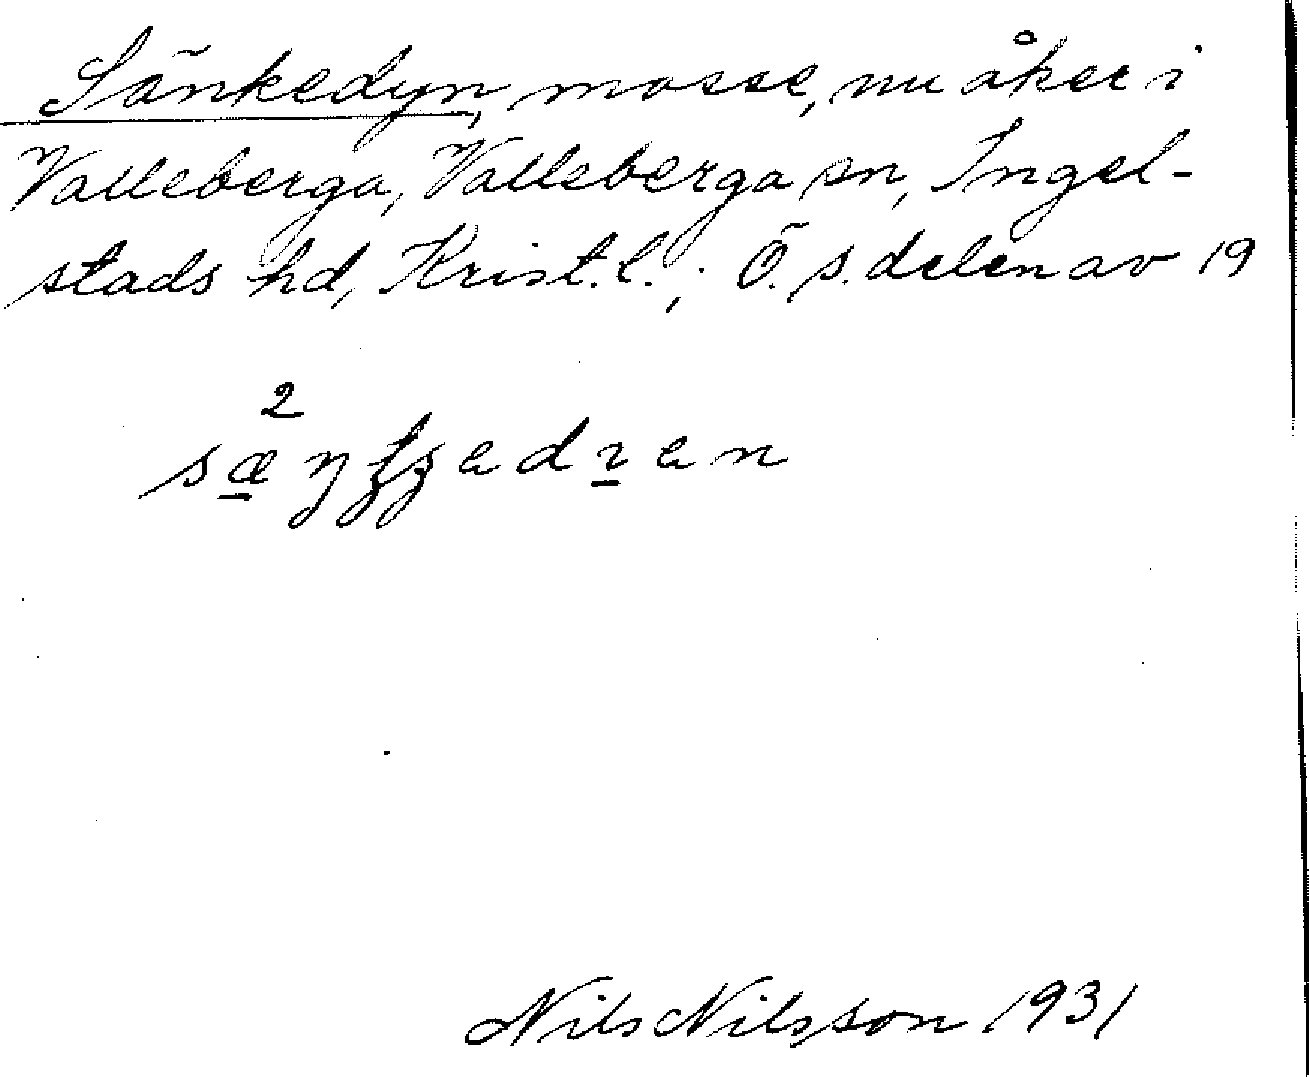 Sänkedyn, mosse, nu åker i
Valleberga, Valleberga sn, Ingel-
stads hd, Krist. l.; Ö. s. delen av 19
2
Nils Nilsson 1931